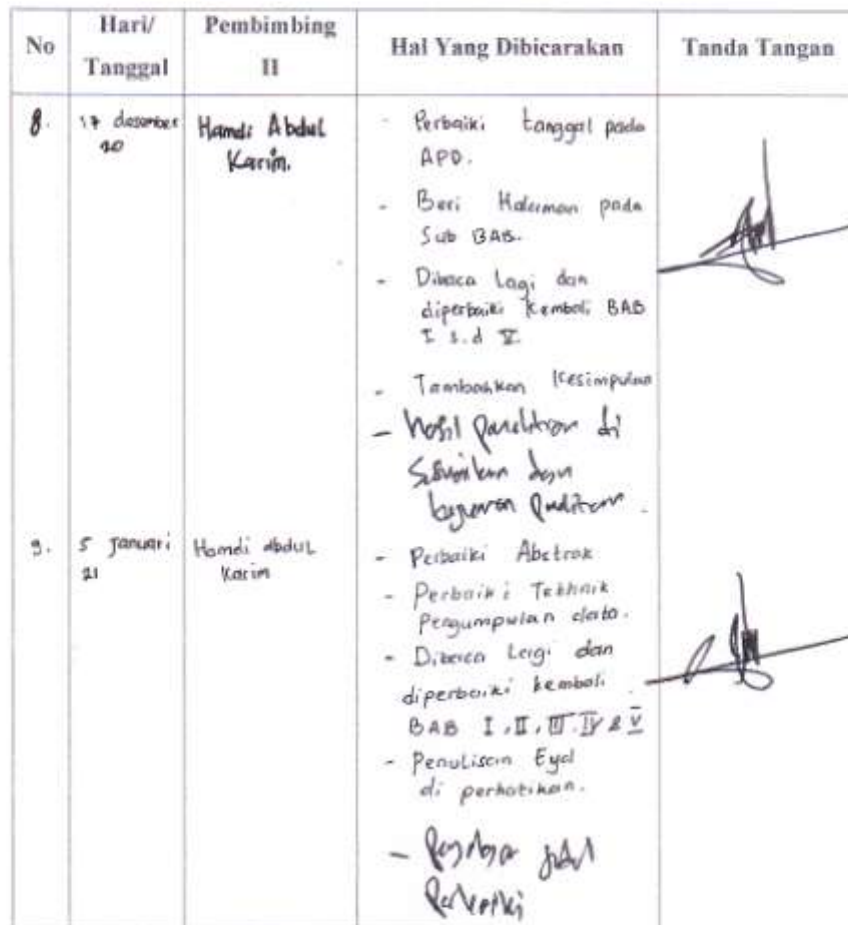 No Hari/ Tanggal Pembimbing II Hal Yang Dibicarakan Tanda Tangan
8. 17 desember 20 Hamdi Abdul Karim.
- Perbaiki tanggal pada
APD.
- Beri Halaman pada
Sub BAB.
- Dibaca Lagi dan
diperbaiki Kembali BAB
I s.d V.
- Tambahkan Kesimpulan
- Hasil penelitian di
9. 5 Januari 21 Hamdi Abdul Karim
- Perbaiki Abstrak
- Perbaiki Tekhnik
Pengumpulan data.
- Dibaca Lagi dan
diperbaiki kembali
BAB I, II, III. IV & V
- Penulisan Eyd
di perhatikan.